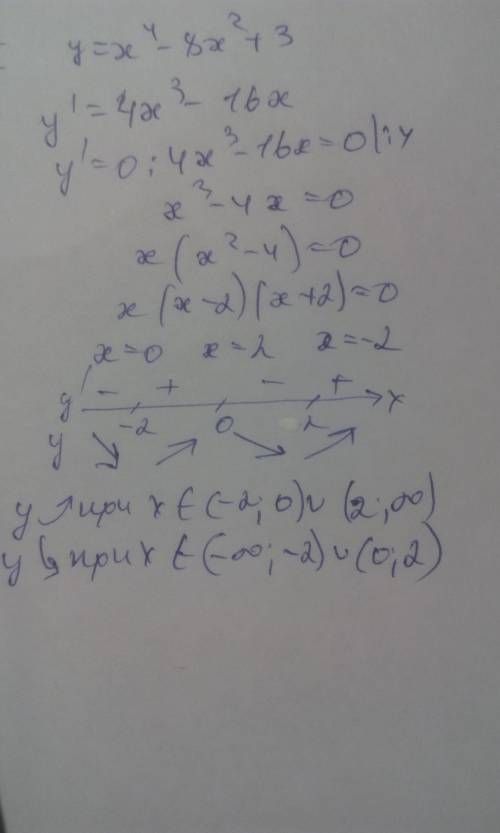 y = x⁴ - 8x² + 3
y' = 4x³ - 16x
y' = 0 : 4x³ - 16x = 0 | : 4
x³ - 4x = 0
x (x² - 4) = 0
x (x - 2) (x + 2) = 0
x = 0 x = 2 x = -2
y' - + - +
-2 0 2 x
y ↘ ↗ ↘ ↗
y ↗ при x ∈ (-2; 0) ∪ (2; ∞)
y ↘ при x ∈ (-∞; -2) ∪ (0; 2)